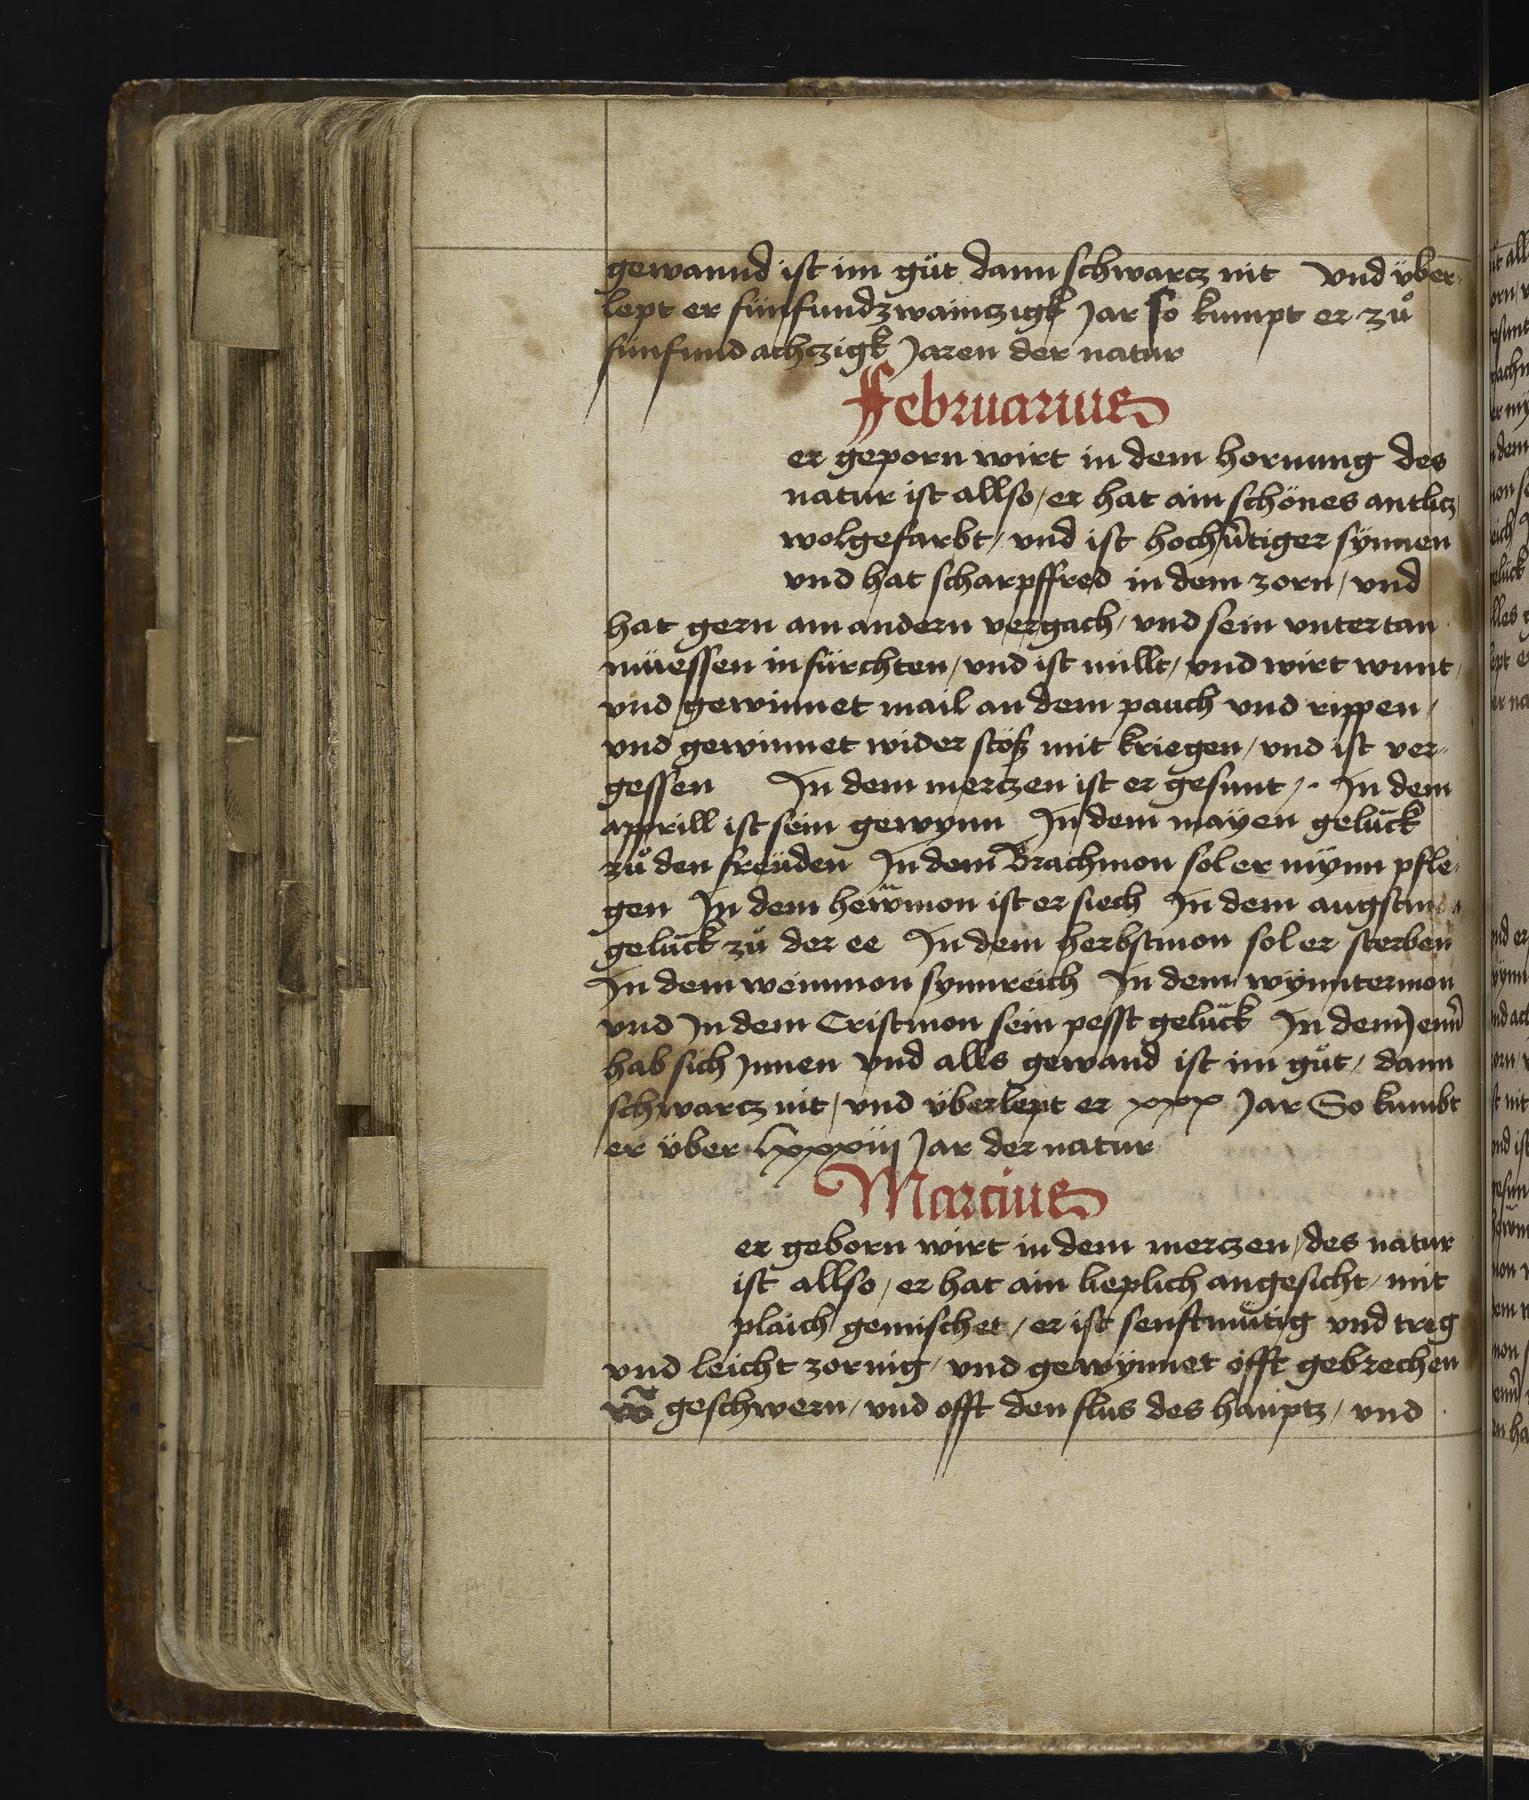 gewannd ist im gůt dann schwarcz nit Vnd über-
lept er fünfundzwainczigk Jar so kumpt er zů
fünfund achczigk Jaren der natur
Februarius
er geporn wirt in dem hornung des
natur ist allso / er hat ain schönes antlicz
wolgefarbt / vnd ist hochmütiger synnen
vnd hat scharpff red in dem zorn / vnd
hat gern am andern vergach / vnd sein vntertan
müessen in fürchten / vnd ist millt / vnd wirt wunt /
vnd gewinnet mail an dem pauch vnd rippen /
vnd gewinnet wider stöß mit kriegen / vnd ist ver-
gessen In dem merczen ist er gesunt / In dem
apprill ist sein gewynn In dem mayen gelück
zů den freüden In dem Brachmon sol er mynn pfle-
gen In dem hewmon ist er siech In dem augstmon
gelück zů der ee In dem herbstmon sol er sterben
In dem weinmon synnreich In dem wynntermon
vnd In dem Cristmon sein pesst gelück In dem Jenner
hab sich Innen vnd alls gewand ist im gůt / dann
schwarcz nit / vnd überlept er xxx Jar So kumbt
er über lxxxiij Jar der natur
Marcius
er geborn wirt in dem merczen / des natur
ist allso / er hat ain lieplich angesicht / mit
plaich gemischet / er ist senftmütig vnd treg
vnd leicht zornig / vnd gewynnet offt gebrechen
geschwern / vnd offt den flus des hauptz / vnd